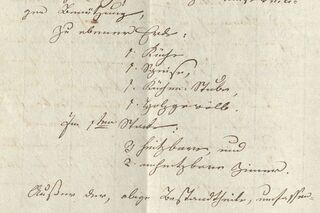 gen Benützung,
Zu ebener Erde:
1. Küche
1. Speise,
1. Küchen Stube,
1. Holzgewölb.
Im 1ten Stock:
2 heitzbare, und
2 unheitzbare Zimer.
Außer der, obige Bestandtheile, umfassen-